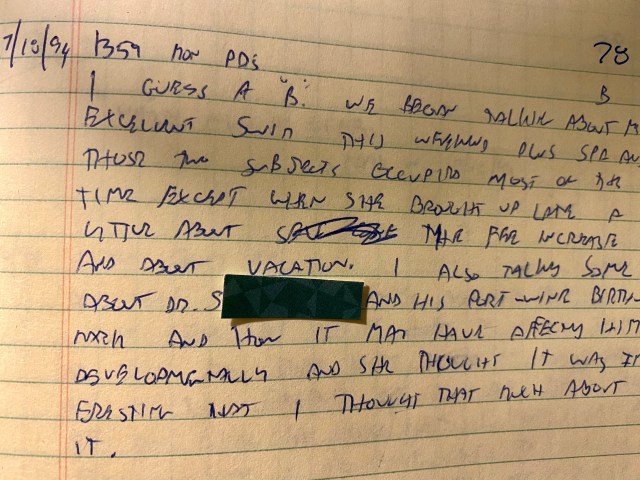 7/18/94 1359 MON PDS 78
I GUESS A "B". WE BEGAN TALKING ABOUT B
EXCELLENT SWIM THIS WEEKEND PLUS SPA AN
THOSE TWO SUBJECTS OCCUPIED MOST OF THE
TIME EXCEPT WHEN SHE BROUGHT UP LATE A
LITTLE ABOUT THE FEE INCREASE
AND ABOUT VACATION. I ALSO TALKED SOME
ABOUT DR. S AND HIS PORT-WINE BIRTH
MARK AND HOW IT MAY HAVE AFFECTED HIM
DEVELOPMENTALLY AND SHE THOUGHT IT WAS IN
ERESTING THAT I THOUGHT THAT MUCH ABOUT
IT.